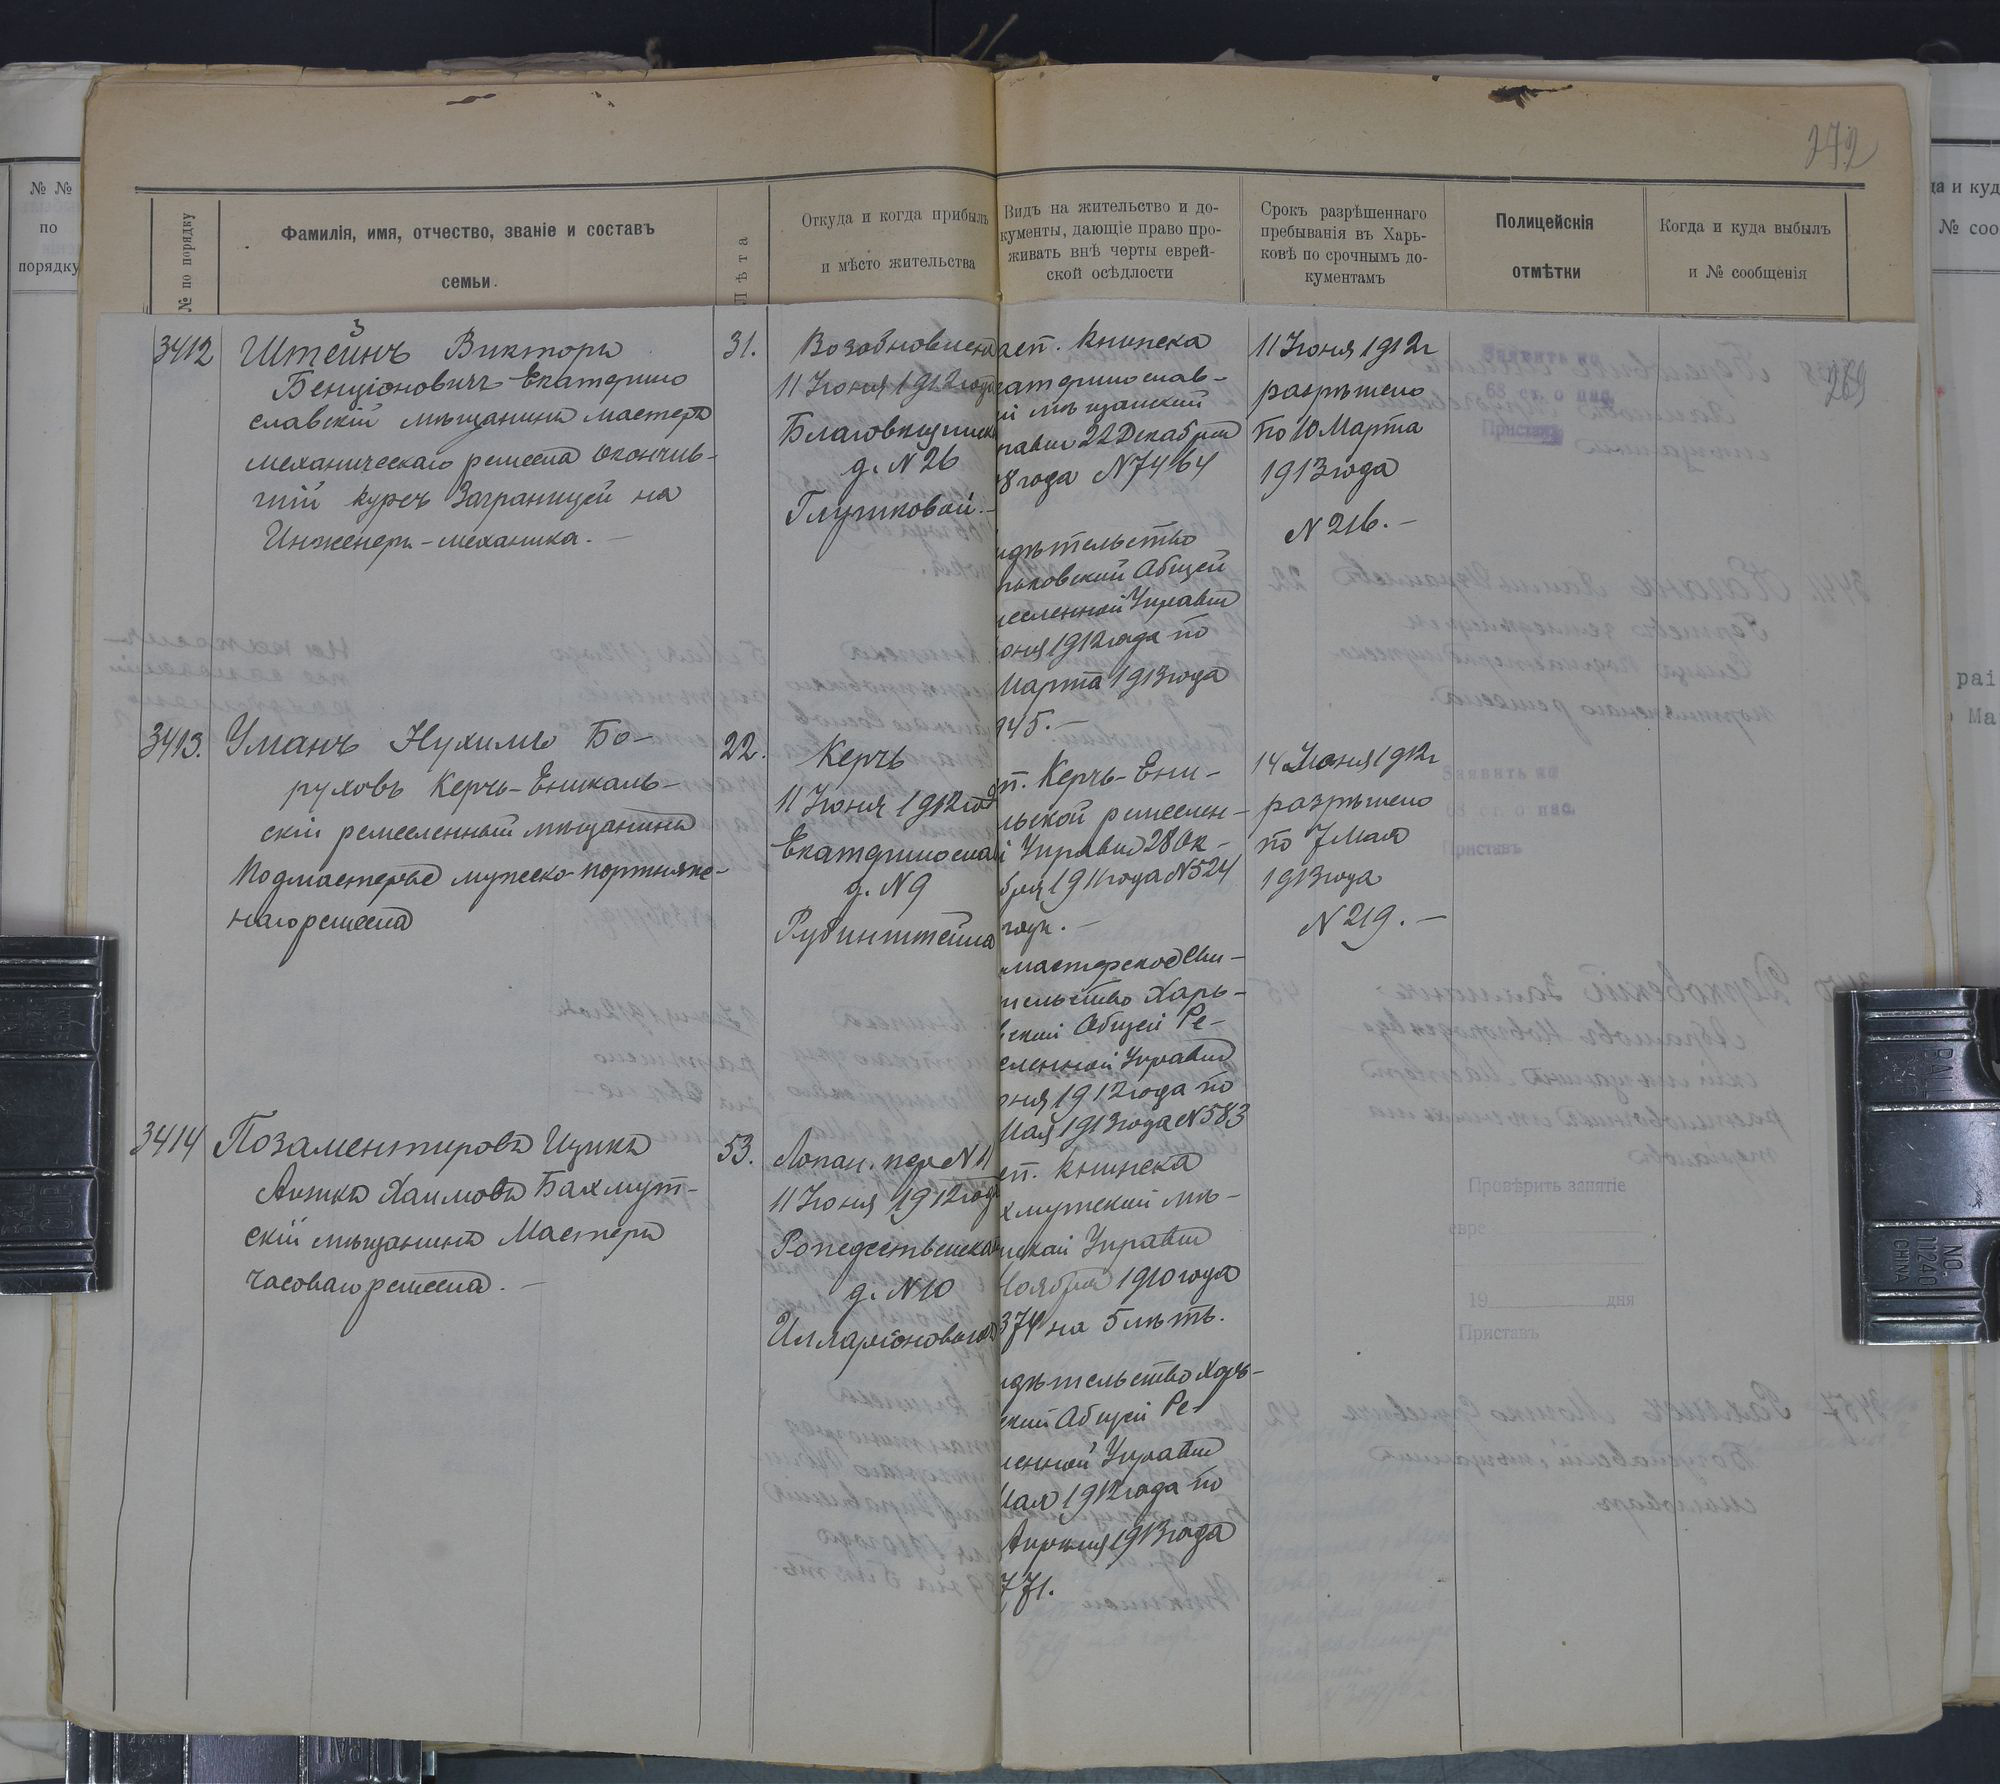 272
№ по порядку
Фамилія, имя, отчество, званіе и составъ
семьи.
Лѣта
Откуда и когда прибылъ
и мѣсто жительства
Видъ на жительство и до-
кументы, дающіе право про-
живать внѣ черты еврей-
ской осѣдлости
Срокъ разрѣшеннаго
пребыванія въ Харь-
ковѣ по срочнымъ до-
кументамъ
Полицейскія
отмѣтки
Когда и куда выбылъ
и № сообщенія
№ №
по
порядку
да и куд
№ соо
269
3412
Штейнъ Викторъ
Бенціоновичъ Екатерино
славскій мѣщанинъ мастеръ
механическаго ремесла Окончив-
шій курсъ Заграницей на
Инженеръ-механика. –
31.
Возобновлена
11 Іюня 1912 года
Благовѣщенск
д. N 26
Глушковой. –
асп. книжка
катеринослав-
й мѣщанский
правы 22 Декабря
8 года N 7464
идѣтельство
рьковский Общей
месленной Управы
юня 1912 года по
Марта 1913 года
945. –
11 Іюня 1912 г
разрѣшено
по 10 Марта
1913 года
N 216. –
3413.
Уманъ Нухимъ Бо-
руховъ Керчь-Еникаль-
скій ремесленный мѣщанинъ
Подмастерье мужско-портняжс-
наго ремесла
22.
Керчь
11 Іюня 1912 год
Екатеринослав
д. N 9
Рубинштейна
п. Керчь-Ени-
льской ремеслен-
й Управы 28 Ок-
бря 1911 года N 524
годъ. –
мастерское Сви-
тельство Харь-
вский Общей Ре-
сленной Управы
юня 1912 года по
Мая 1913 года N 583
14 Іюня 1912 г
разрѣшено
по 7 Мая
1913 года
N 219. –
3414
Позаментировъ Ицикъ
Аишка Хаимовъ Бахмут-
скій мѣщанинъ Мастеръ
часоваго ремесла. –
53.
Лопан. пер N 11
11 Іюня 1912 года
Рождественская
д. N 10
Илларіоноваго
сп. книжка
хмутский мѣ-
нской Управы
Ноября 1910 года
374 на 5 лѣтъ.
идѣтельство Харь-
ский Общей Ре-
ленной Управы
Мая 1912 года по
Апрѣля 1913 года
771.
Провѣрить занятіе
евре
19 дня
Приставъ